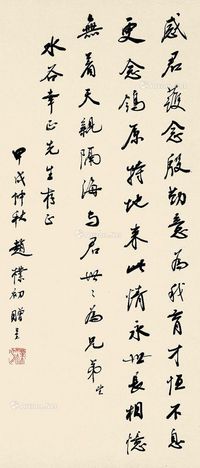 感君護念殷勤意為我育才恒不息
更念鴒原特地來此情永世長相憶
無著天親隔海與君世〻為兄弟
水谷幸正先生存正
甲戌仲秋 趙樸初贈